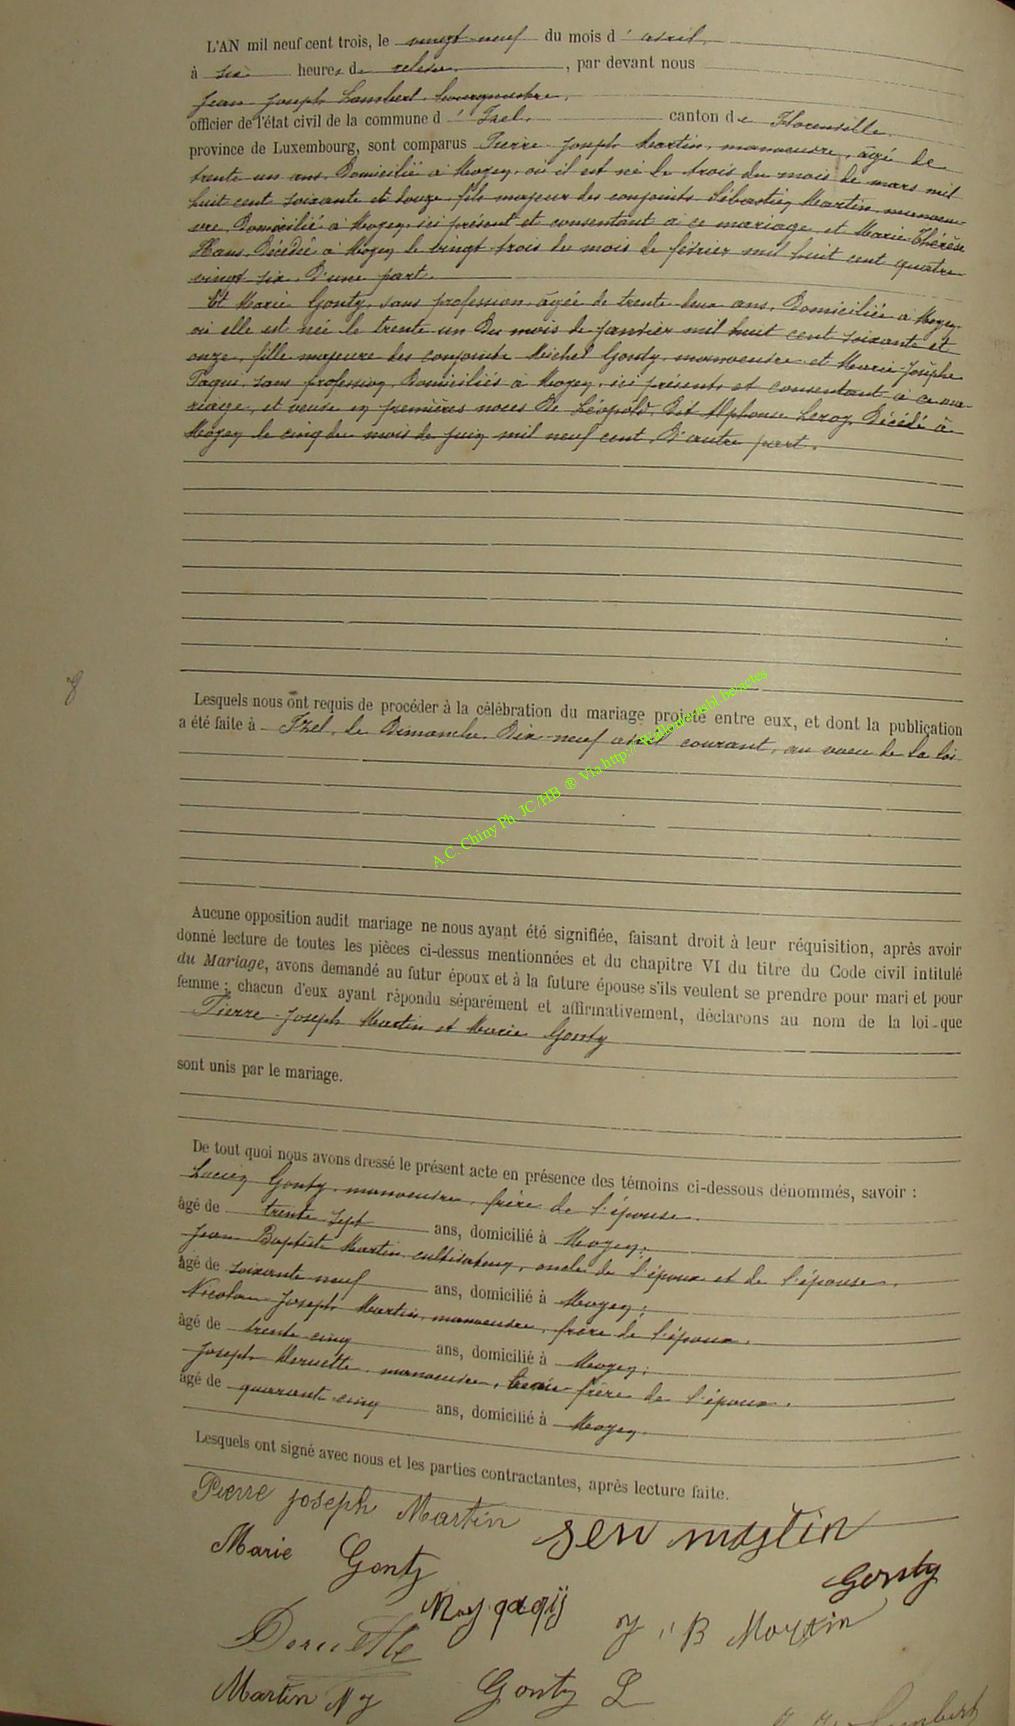 L'AN mil neuf cent trois, le vingt-neuf du mois d'avril
à six heures de relevée, par devant nous
Jean Joseph Lambert, bourgmestre,
officier de l'état civil de la commune d'Izel, canton de Florenville
province de Luxembourg, sont comparus Pierre Joseph Martin, manoeuvre, âgé de
trente un ans, Domicilié à Moyen, où il est né le trois du mois de mars mil
huit cent soixante et douze, fils majeur des conjoints Sébastien Martin, manoeu-
vre, Domicilié à Moyen, ici présent et consentant à ce mariage, et Marie Thérèse
Décédée à Moyen le vingt trois du mois de février mil huit cent quatre
vingt six, D'une part.
Et Marie Gonty, sans profession, âgée de trente deux ans, Domiciliée à Moyen,
où elle est née le trente un Du mois de janvier mil huit cent soixante et
onze, fille majeure des conjoints Michel Gonty, manoeuvre et Marie-Josèphe
sans profession, Domiciliés à Moyen, ici présents et consentant à ce ma-
riage, et veuve en premières noces De Léopold, Dit Alphonse Leroy, Décédé à
Moyen le cinq du mois de juin mil neuf cent, D'autre part.
Lesquels nous ont requis de procéder à la célébration du mariage projeté entre eux, et dont la publication
a été faite à Izel, le Dimanche, Dix-neuf avril courant, au voeu de la loi
A.C. Chiny Ph JC/HB ® Via http://
Aucune opposition audit mariage ne nous ayant été signifiée, faisant droit à leur réquisition, après avoir
donné lecture de toutes les pièces ci-dessus mentionnées et du chapitre VI du titre du Code civil intitulé
du Mariage, avons demandé au futur époux et à la future épouse s'ils veulent se prendre pour mari et pour
femme ; chacun d'eux ayant répondu séparément et affirmativement, déclarons au nom de la loi que
Pierre Joseph Martin et Marie Gonty
sont unis par le mariage.
De tout quoi nous avons dressé le présent acte en présence des témoins ci-dessous dénommés, savoir :
Lucien Gonty, manoeuvre, frère de l'épouse
âgé de trente sept ans, domicilié à Moyen ;
Jean Baptiste Martin, cultivateur, oncle de l'époux et de l'épouse,
âgé de soixante neuf ans, domicilié à Moyen ;
Nicolas Joseph Martin, manoeuvre, frère de l'époux,
âgé de trente cinq ans, domicilié à Moyen ;
Joseph manoeuvre, beau-frère de l'époux,
âgé de quarante cinq ans, domicilié à Moyen.
Lesquels ont signé avec nous et les parties contractantes, après lecture faite.
Pierre joseph Martin
Marie Gonty
Gonty
J B Martin
Martin N J
Gonty L
Lambert